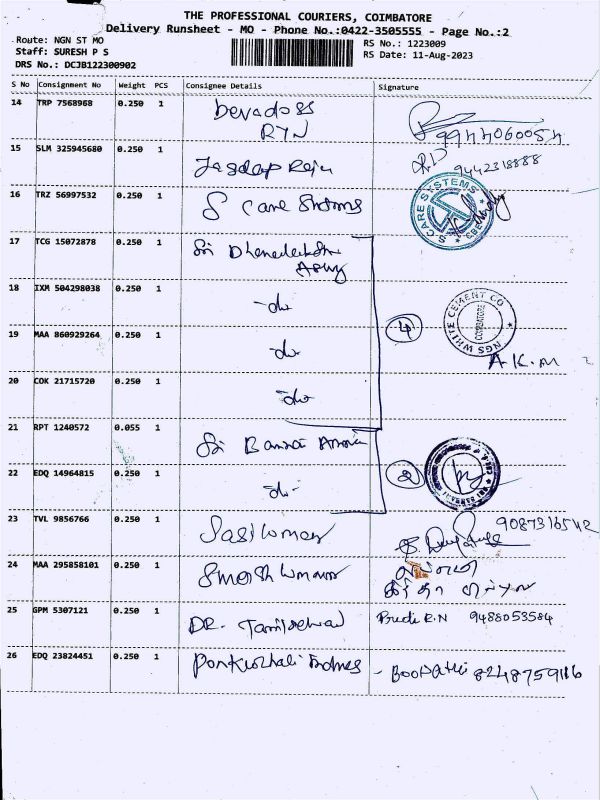 THE PROFESSIONAL COURIERS, COIMBATORE
Delivery Runsheet - MO - Phone No.:0422-3505555 - Page No.:2
Route: NGN ST MO
RS No.: 1223009
Staff: SURESH P S
RS Date: 11-Aug-2023
DRS No.: DCJB122300902
S No Consignment No Weight PCS Consignee Details Signature
14 TRP 7568968 0.250 1 Devadoss
RTN
9944060054
15 SLM 325945680 0.250 1
9442318888
16 TRZ 56997532 0.250 1 S Care Systems
S CARE SYSTEMS
17 TCG 15072878 0.250 1 Sri
18 IXM 504298038 0.250 1 -do
4
NGS WHITE CEMENT CO
COIMBATORE
19 MAA 860929264 0.250 1 -do
A.K.M
20 COK 21715720 0.250 1 -do-
21 RPT 1240572 0.055 1 Sri Bannai
22 EDQ 14964815 0.250 1 -do-
2
23 TVL 9856766 0.250 1 Sasikumar
9087316542
24 MAA 295858101 0.250 1 Suresh Kumar
25 GPM 5307121 0.250 1 DR. Tamilselvan
R.N 9488053584
26 EDQ 23824451 0.250 1 Ponkuzhali
- Boopathi 8248759116